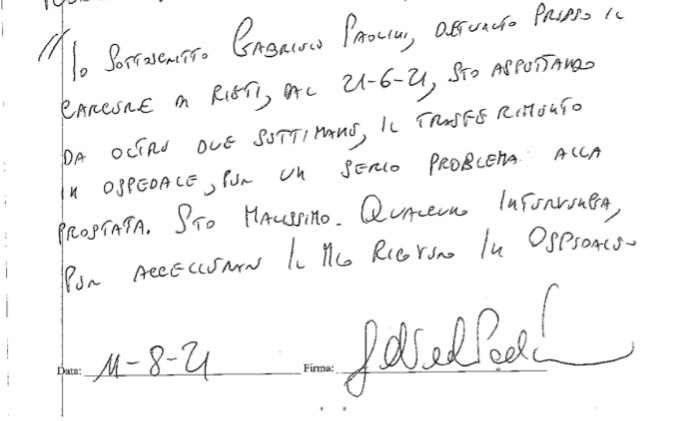 // Io Sottoscritto Gabriele Paolini, detenuto presso il
carcere di Rieti, dal 21-6-21, sto aspettando
da oltre due settimane, il trasferimento
in ospedale, per un serio problema alla
prostata. Sto malissimo. Qualcuno intervenga,
per accelerare il mio ricovero in ospedale.
Data: 11-8-21 Firma: